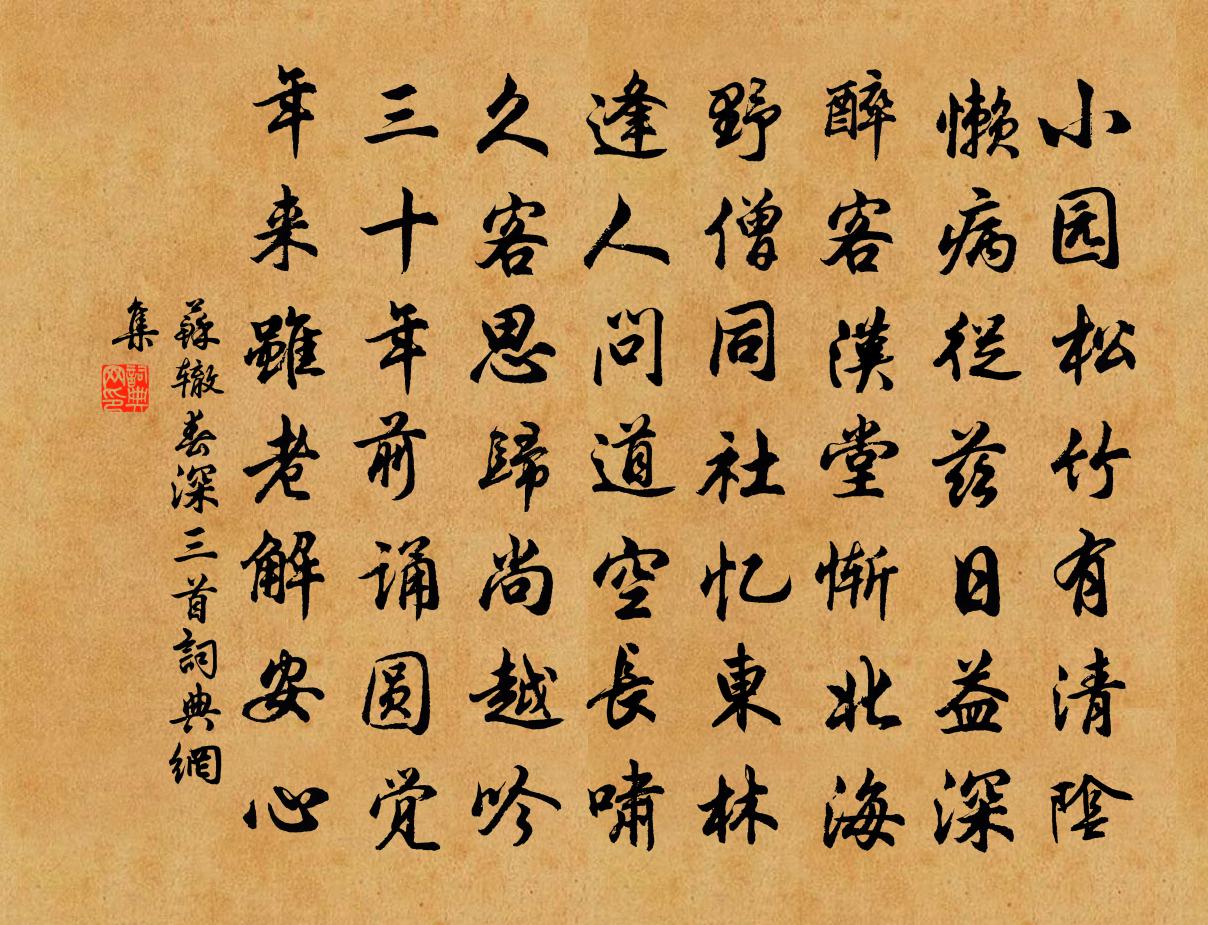 小园松竹有清陰
懒病從茲日益深
醉客漢堂慚北海
野僧同社忆東林
逢人問道空長嘯
久客思歸尚越吟
三十年前诵圆觉
年来雖老解安心
蘇辙春深三首詞典網
集
詞典网印